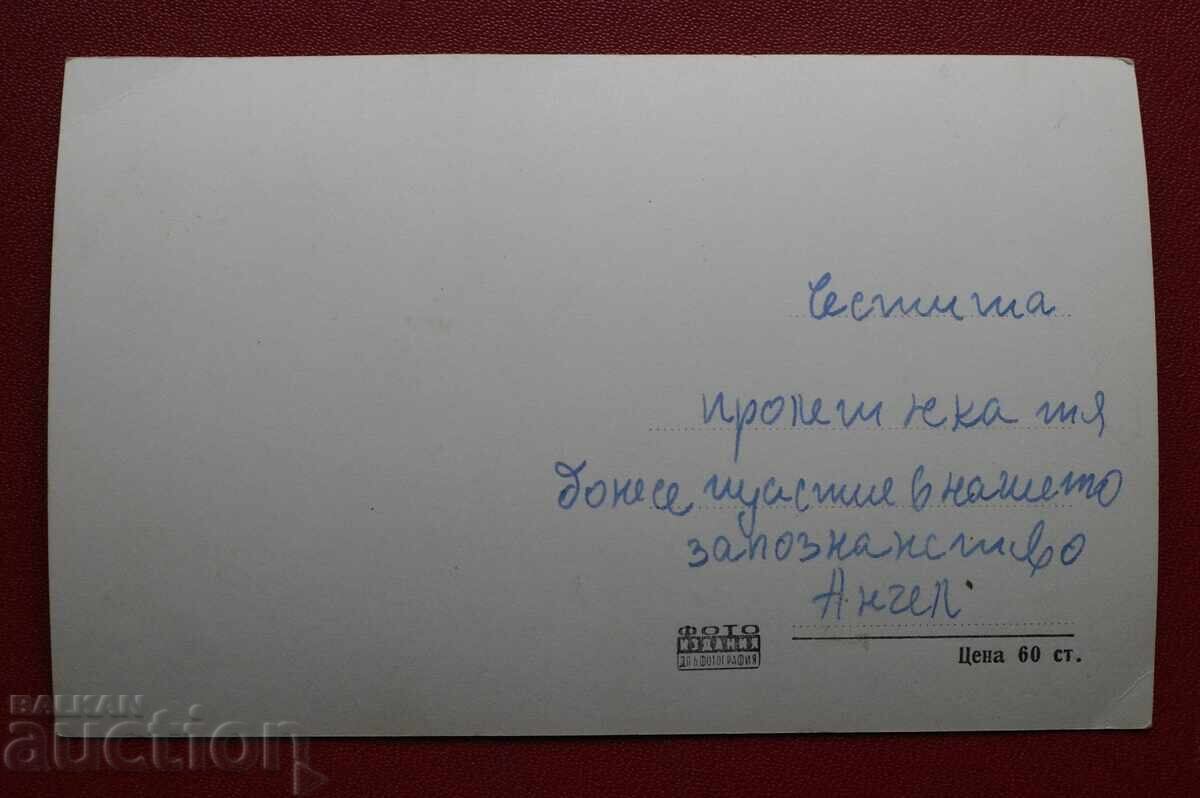 Честита
пролет нека тя
донесе щастие в нашето
запознанство
Ангел.
ФОТО
ИЗДАНИЯ
ДП БФОТОГРАФИЯ
Цена 60 ст.
BALKAN
auction